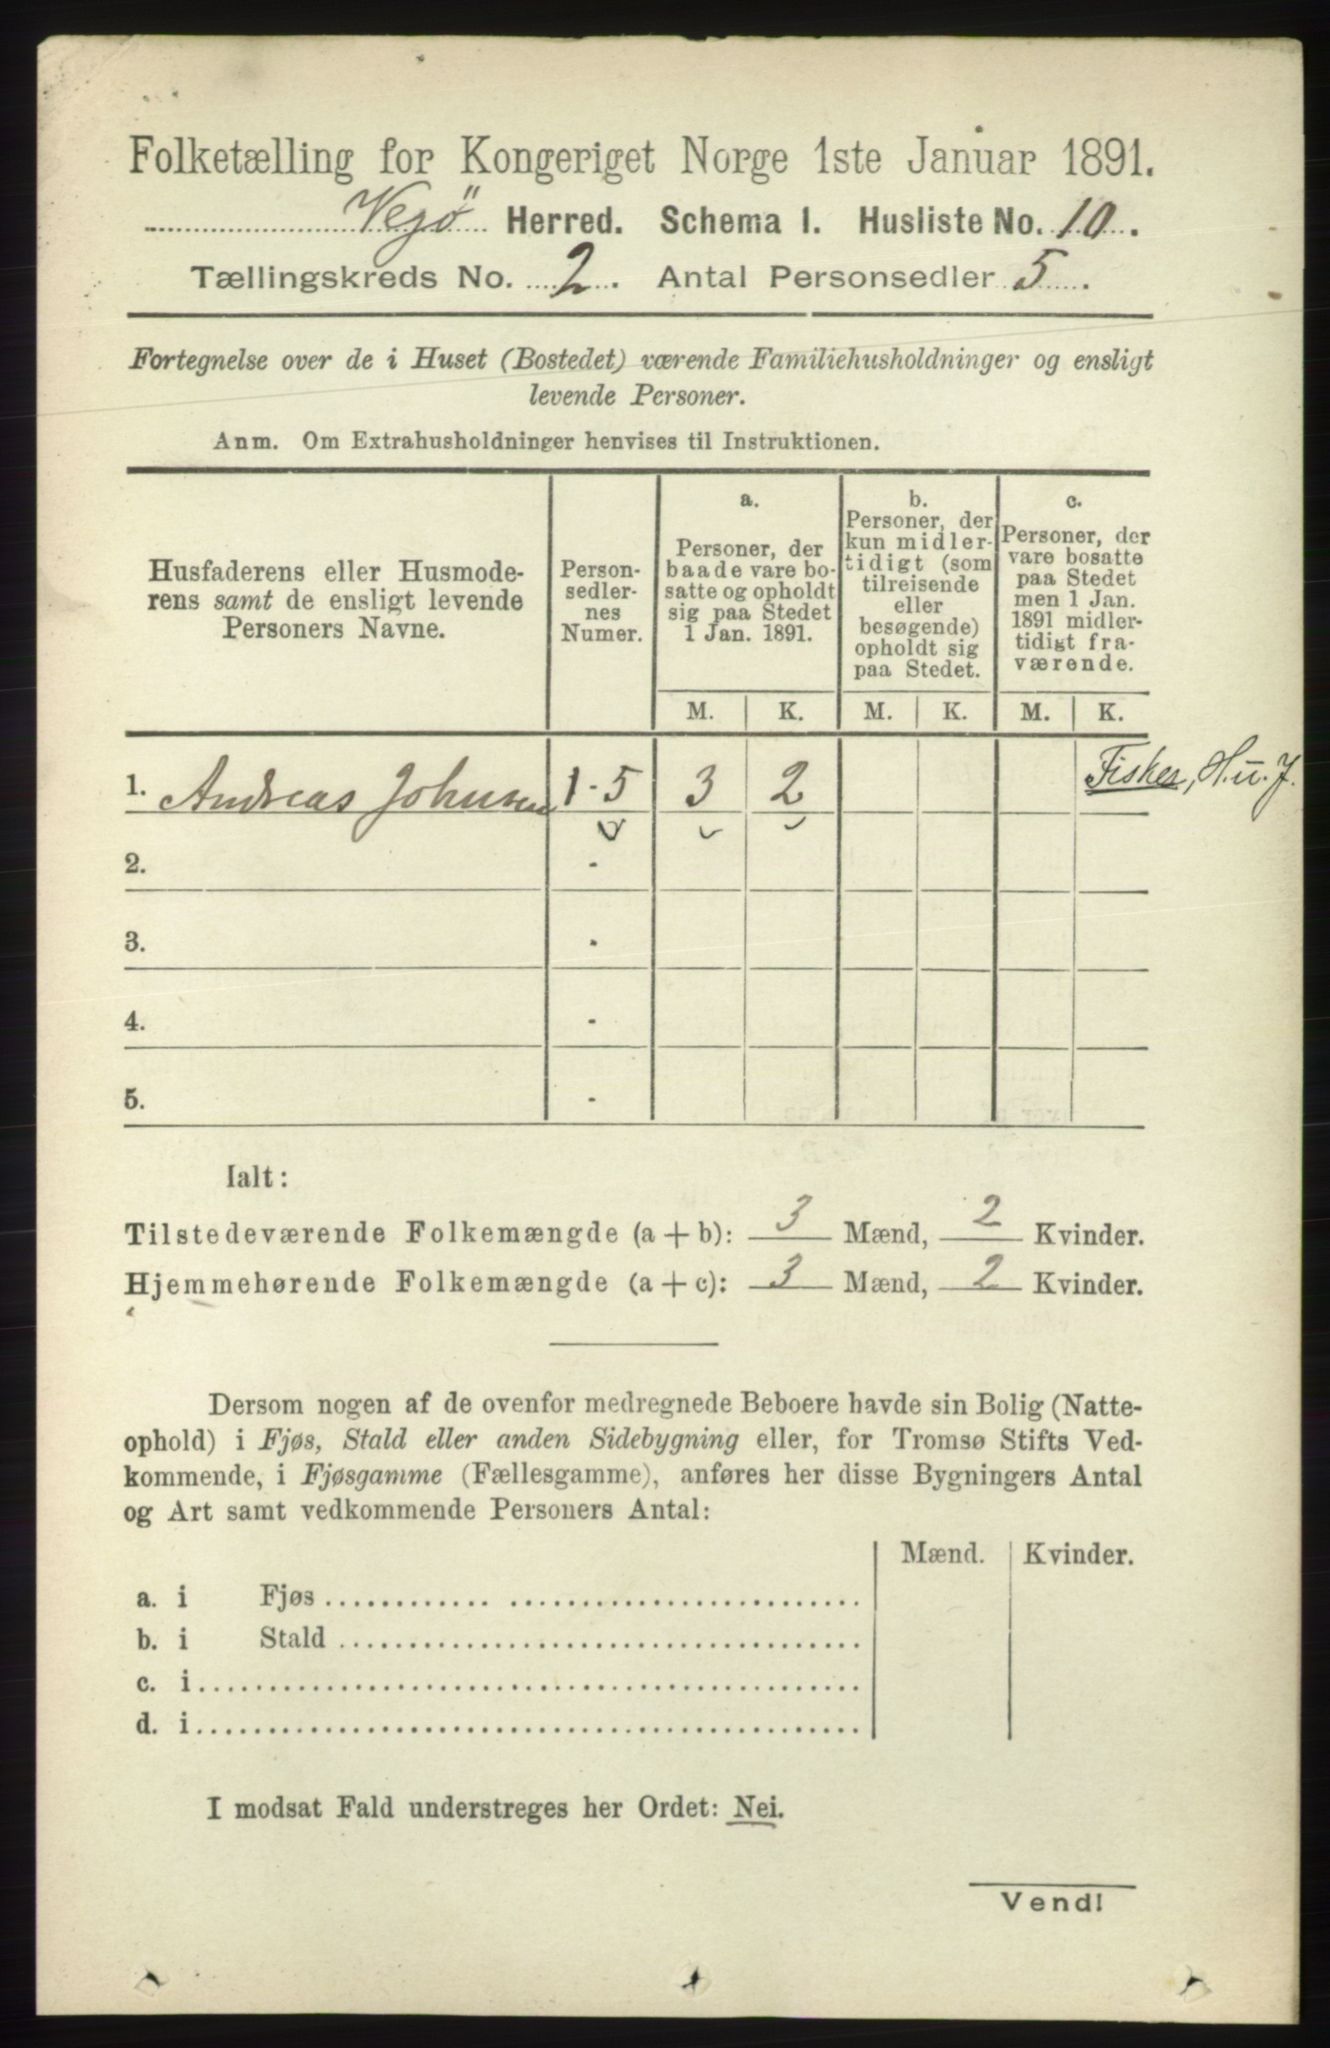 Folketælling for Kongeriget Norge 1ste Januar 1891.
Vegö Herred. Schema I. Husliste No. 10.
Tællingskreds No. 2. Antal Personsedler 5.
Fortegnelse over de i Huset (Bostedet) værende Familiehusholdninger og ensligt
levende Personer.
Anm. Om Extrahusholdninger henvises til Instruktionen.
Husfaderens eller Husmode-
rens samt de ensligt levende
Personers Navne.
Person-
sedler-
nes
Numer.
a.
Personer, der
baade vare bo-
satte og opholdt
sig paa Stedet
1 Jan. 1891.
b.
Personer, der
kun midler-
tidigt (som
tilreisende
eller
besøgende)
opholdt sig
paa Stedet.
c.
Personer, der
vare bosatte
paa Stedet
men 1 Jan.
1891 midler-
tidigt fra-
værende.
M. K. M. K. M. K.
1. Andreas Johnsen 1-5 3 2 Fisker, H.u.J.
2. -
3. -
4. -
5. -
Ialt:
Tilstedeværende Folkemængde (a + b): 3 Mænd, 2 Kvinder.
Hjemmehørende Folkemængde (a + c): 3 Mænd, 2 Kvinder.
Dersom nogen af de ovenfor medregnede Beboere havde sin Bolig (Natte-
ophold) i Fjøs, Stald eller anden Sidebygning eller, for Tromsø Stifts Ved-
kommende, i Fjøsgamme (Fællesgamme), anføres her disse Bygningers Antal
og Art samt vedkommende Personers Antal:
Mænd. Kvinder.
a. i Fjøs
b. i Stald
c. i
d. i
I modsat Fald understreges her Ordet: Nei.
Vend!